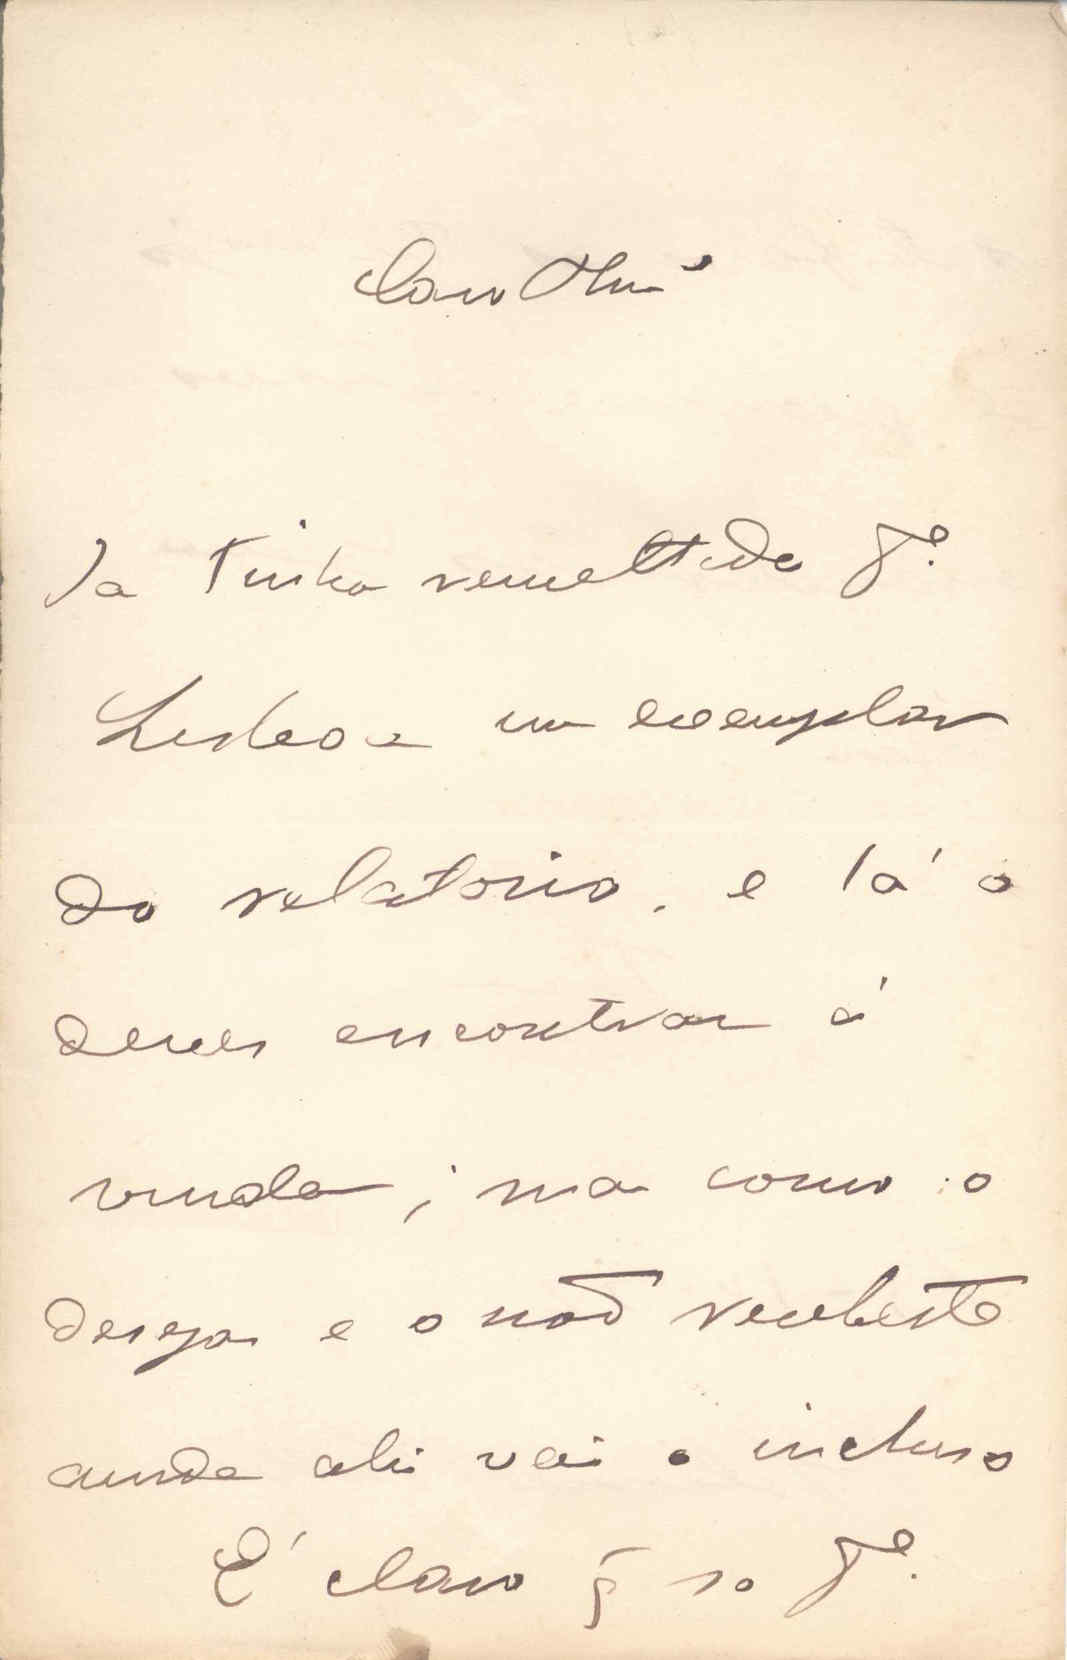 Caro
Ja tinha remettido pª.
Lisboa um exemplar
do relatorio, e lá o
deves encontrar á
venda; mas como o
desejas e o naõ recebeste
ainda ahi vai o incluso
E' claro q̃ só pª.